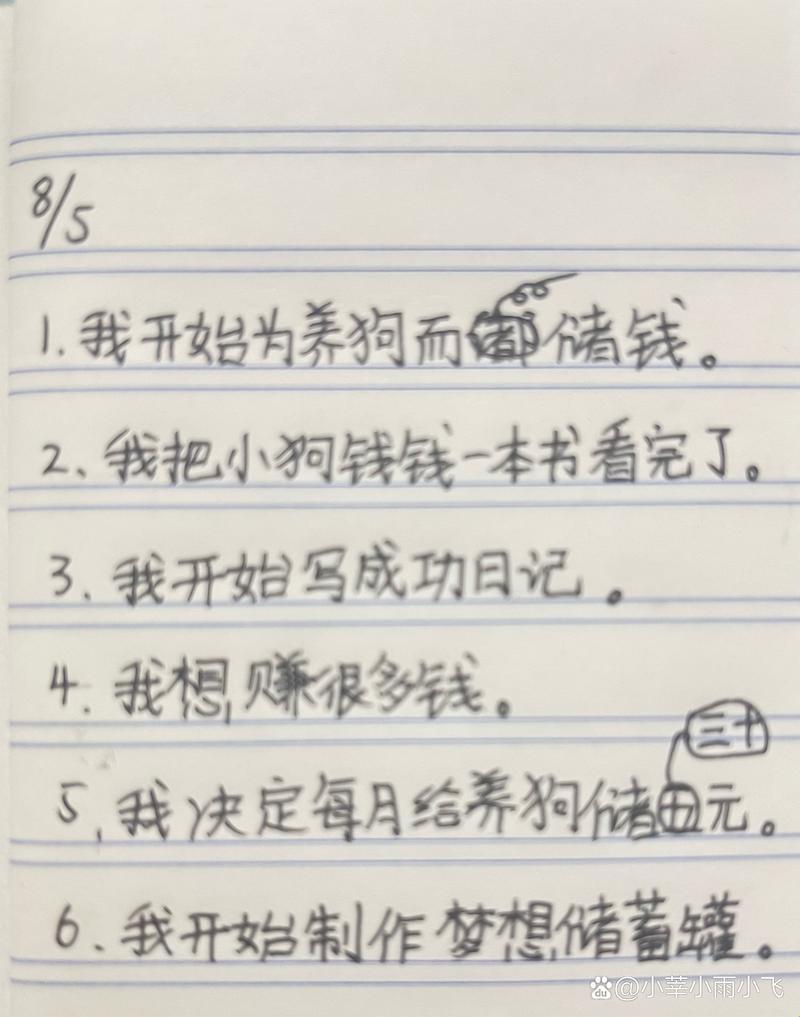 8/5
1. 我开始为养狗而储钱。
2、我把小狗钱钱一本书看完了。
3. 我开始写成功日记。
4. 我想赚很多钱。
三十
5、我决定每月给养狗储元。
6. 我开始制作梦想储蓄罐。
du @小莘小雨小飞